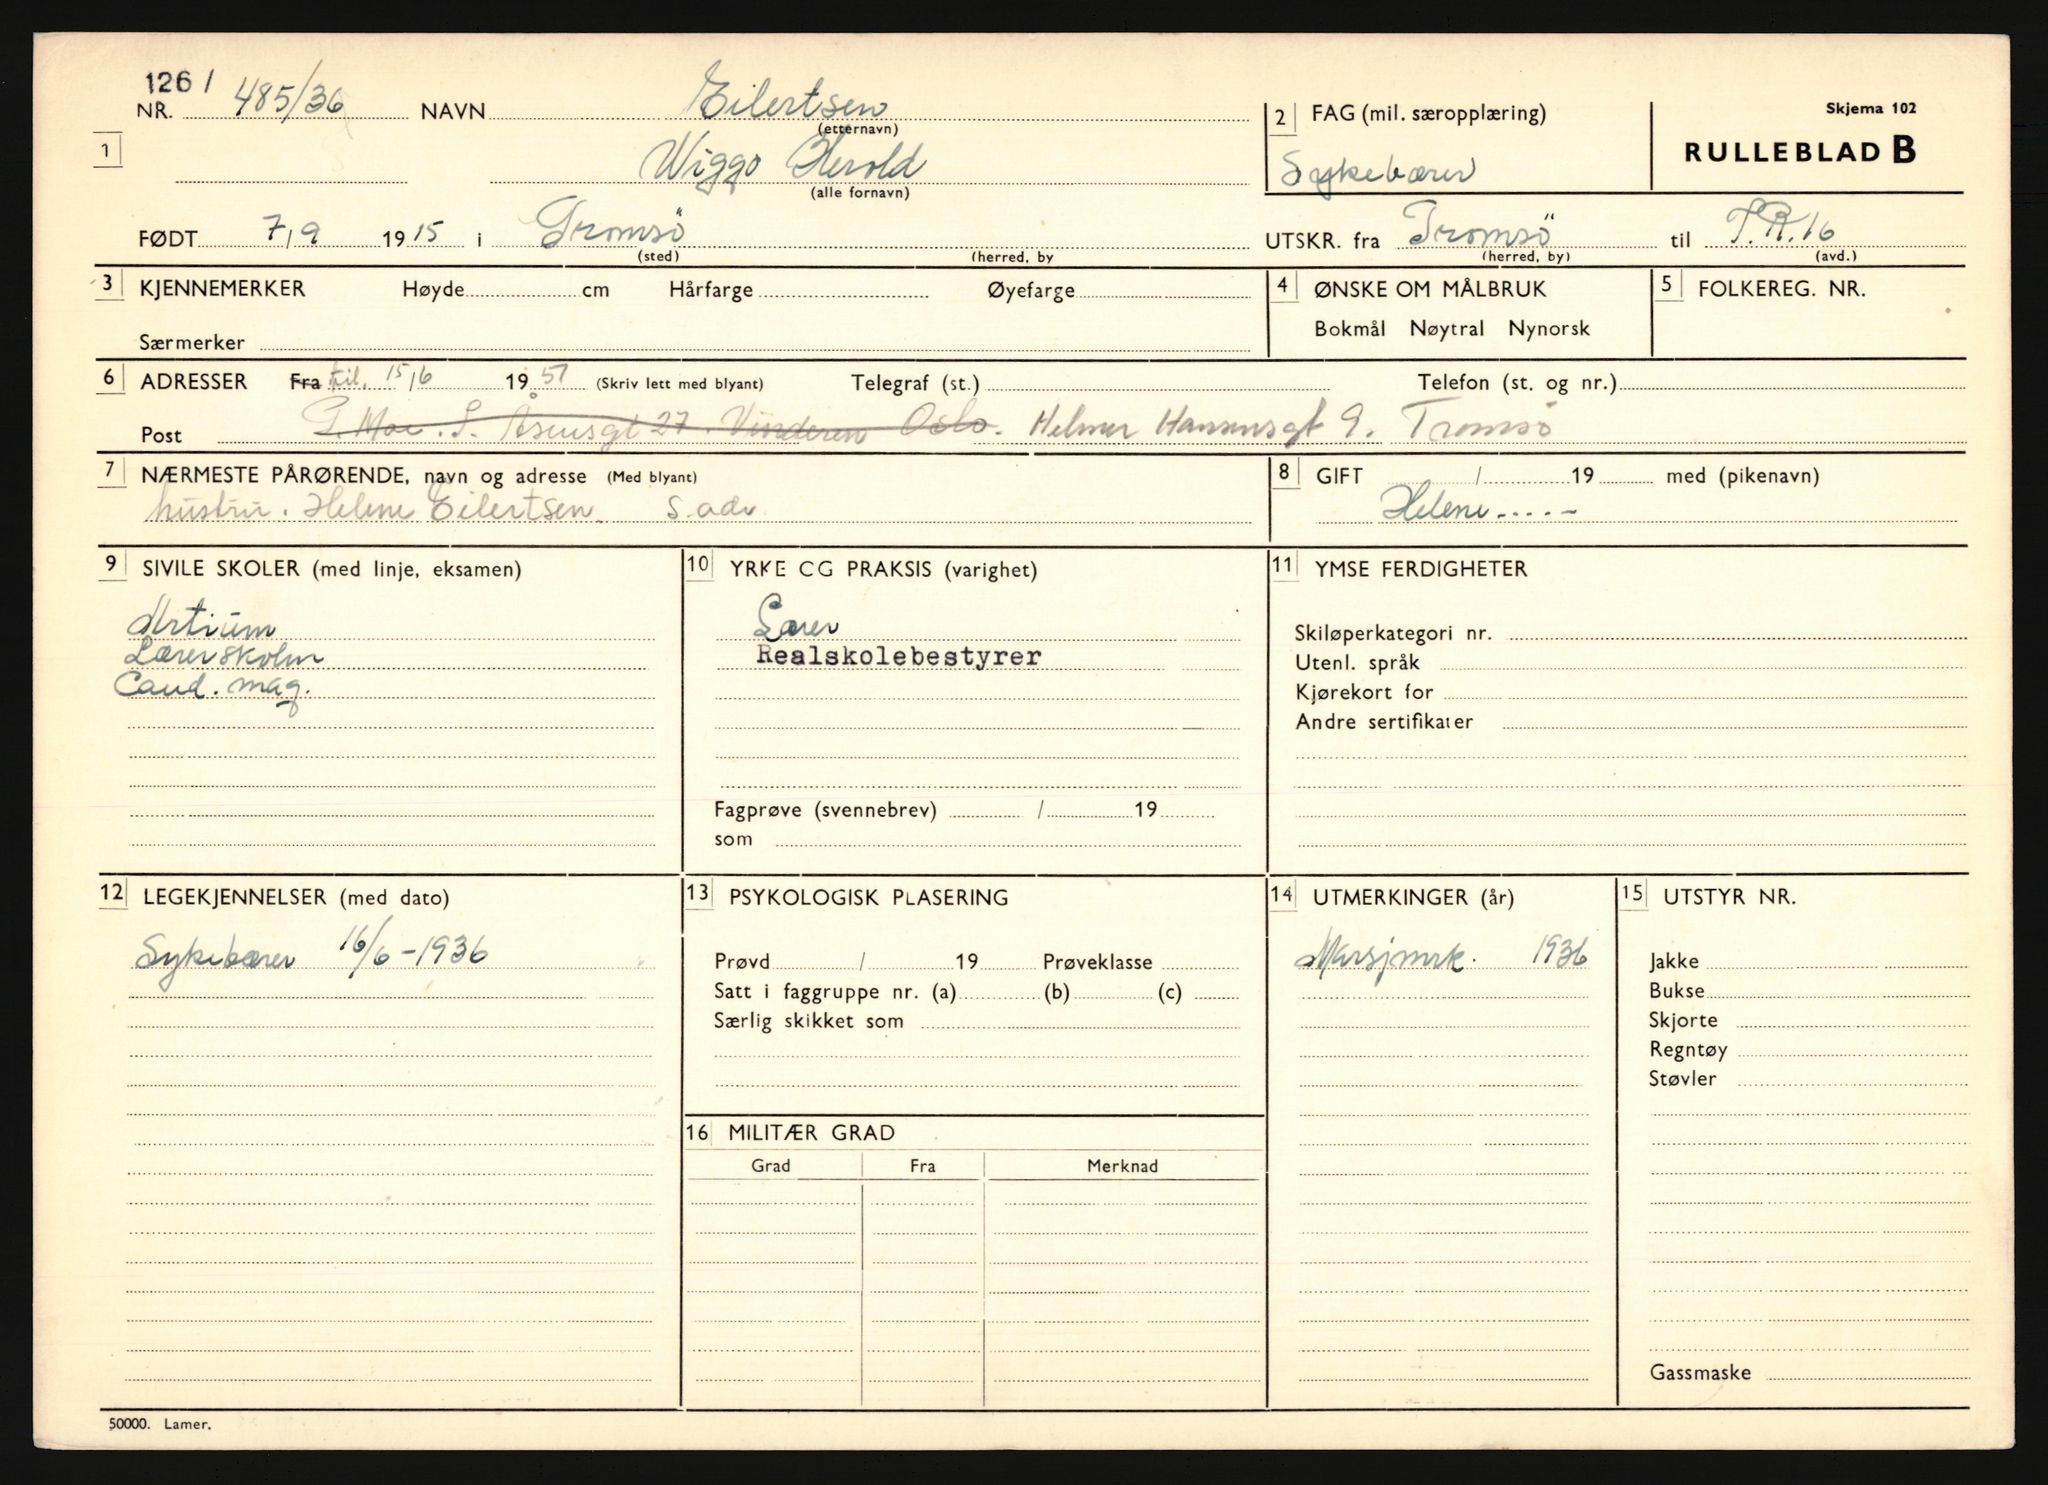 126 /
NR. 485/36 NAVN Eilertsen
(etternavn)
1
Wiggo Herold
(alle fornavn)
2 FAG (mil. særopplæring)
Sykebærer
Skjema 102
RULLEBLAD B
FØDT 7/9 1915 i Tromsö
(sted) (herred, by
UTSKR. fra Tromsö til T.R.16
(herred, by) (avd.)
3 KJENNEMERKER Høyde cm Hårfarge Øyefarge
Særmerker
4 ØNSKE OM MÅLBRUK
Bokmål Nøytral Nynorsk
5 FOLKEREG. NR.
6 ADRESSER Fra til. 15/6 1951 (Skriv lett med blyant) Telegraf (st.) Telefon (st. og nr.)
Post P. Moe. S. Åsensgt 27. Vinderen Oslo. Helmer Hansensgt 9. Tromsö
7 NÆRMESTE PÅRØRENDE, navn og adresse (Med blyant)
hustru. Helene Eilertsen s. adr.
8 GIFT / 19 med (pikenavn)
Helene .....
9 SIVILE SKOLER (med linje, eksamen)
Artium
Lærerskolen
Cand. mag.
10 YRKE CG PRAKSIS (varighet)
Lærer
Realskolebestyrer
Fagprøve (svennebrev) / 19
som
11 YMSE FERDIGHETER
Skiløperkategori nr.
Utenl. språk
Kjørekort for
Andre sertifikater
12 LEGEKJENNELSER (med dato)
Sykebærer 16/6-1936
13 PSYKOLOGISK PLASERING
Prøvd / 19 Prøveklasse
Satt i faggruppe nr. (a) (b) (c)
Særlig skikket som
14 UTMERKINGER (år)
Marsjmrk. 1936
15 UTSTYR NR.
Jakke
Bukse
Skjorte
Regntøy
Støvler
Gassmaske
16 MILITÆR GRAD
Grad Fra Merknad
50000. Lamer.